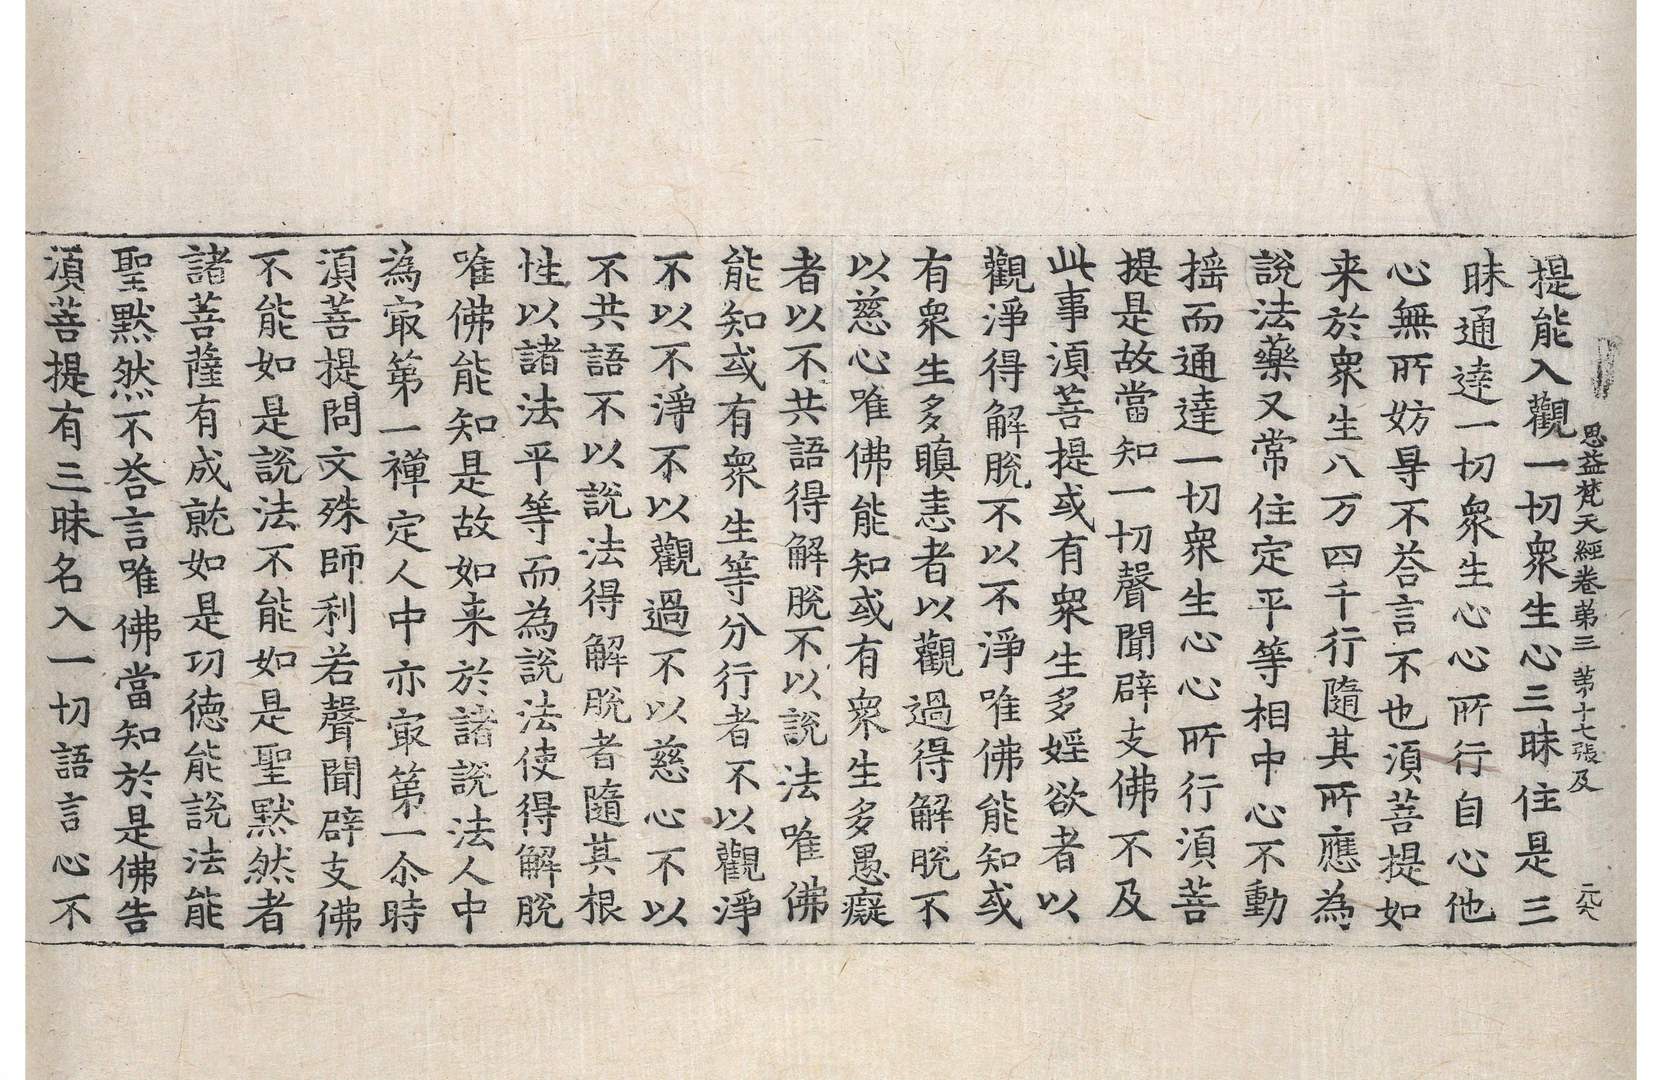 思益梵天經卷第三 第十七張 及
提能入觀一切衆生心三昧住是三
昧通達一切衆生心心所行自心他
心無所妨㝵不荅言不也湏菩提如
来於衆生八万四千行隨其所應為
說法藥又常住定平等相中心不動
揺而通達一切衆生心心所行湏菩
提是故當知一切聲聞辟支佛不及
此事湏菩提或有衆生多婬欲者以
觀淨得解脫不以不淨唯佛能知或
有衆生多瞋恚者以觀過得解脫不
以慈心唯佛能知或有衆生多愚癡
者以不共語得解脫不以說法唯佛
能知或有衆生等分行者不以觀淨
不以不淨不以觀過不以慈心不以
不共語不以說法得解脫者隨其根
性以諸法平等而為說法使得解脫
唯佛能知是故如来於諸說法人中
為㝡第一禪定人中亦㝡第一尒時
湏菩提問文殊師利若聲聞辟支佛
不能如是說法不能如是聖默然者
諸菩薩有成就如是功德能說法能
聖默然不荅言唯佛當知於是佛告
湏菩提有三昧名入一切語言心不